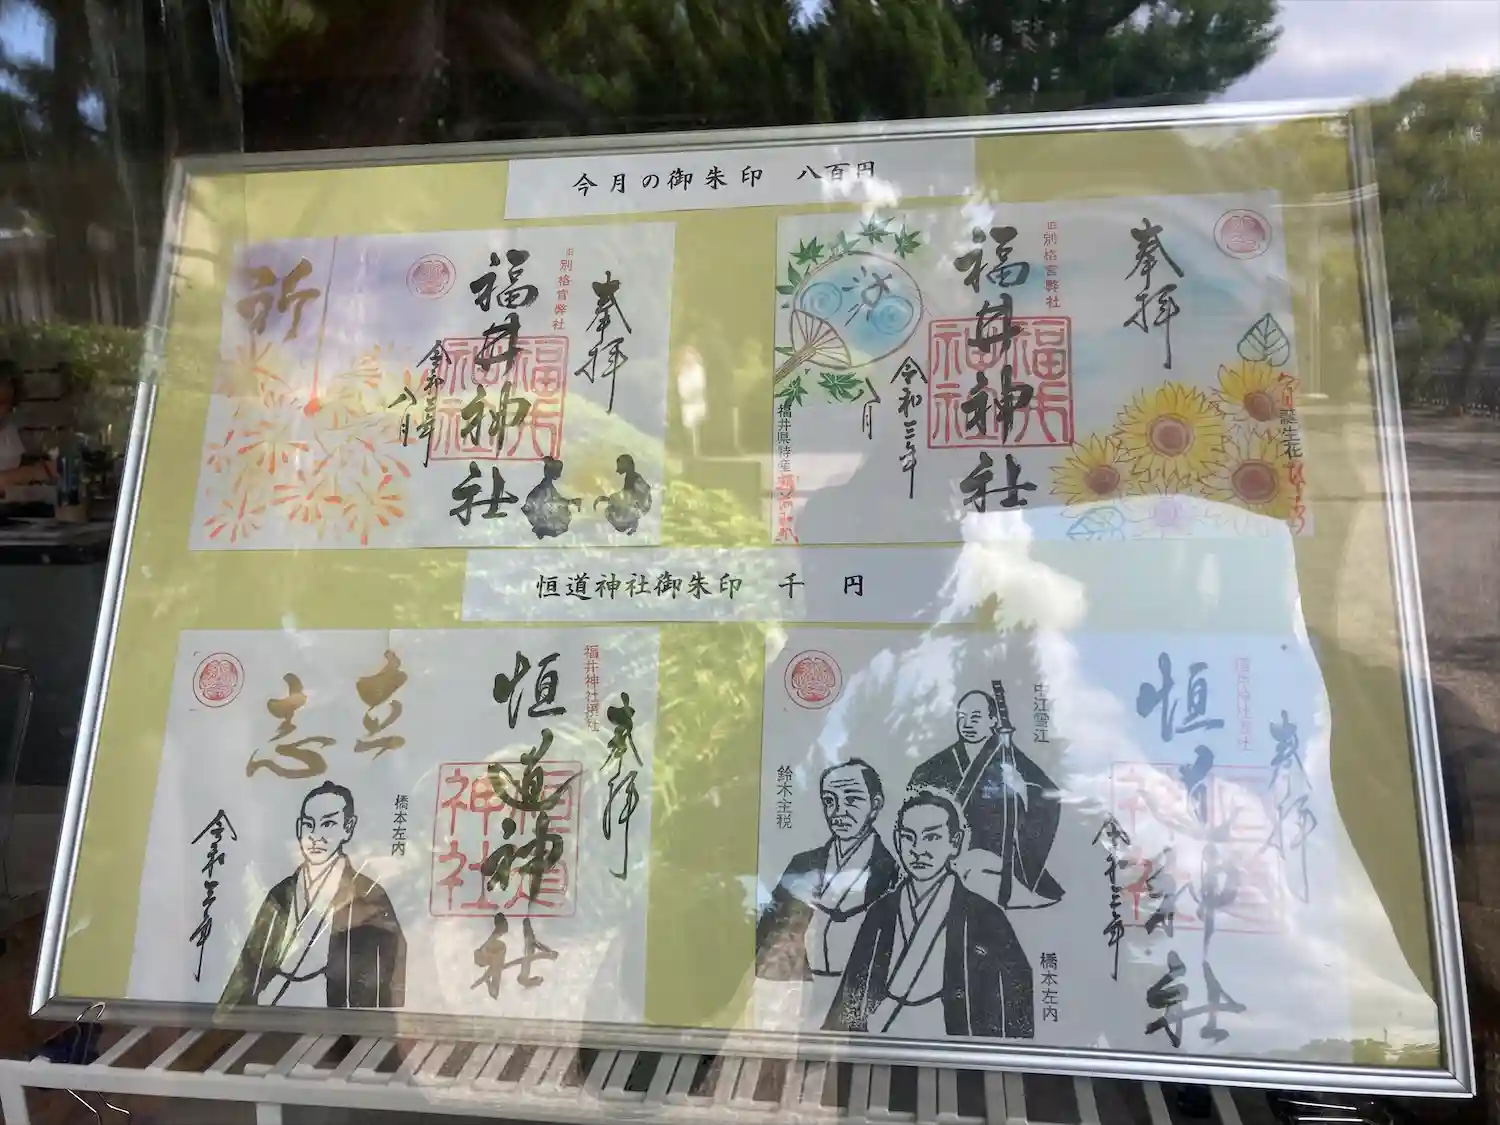 今月の御朱印 八百円
奉拝
旧別格官弊社
福井神社
福井神社
令和三年
八月
祈
奉拝
旧別格官弊社
福井神社
福井神社
令和三年
八月
涼
福井県特産
八月誕生花
恒道神社御朱印 千円
奉拝
福井神社摂社
恒道神社
恒道神社
立志
橋本左内
令和三年
奉拝
福井神社摂社
恒道神社
恒道神社
令和三年
中江雪江
鈴木主税
橋本左内